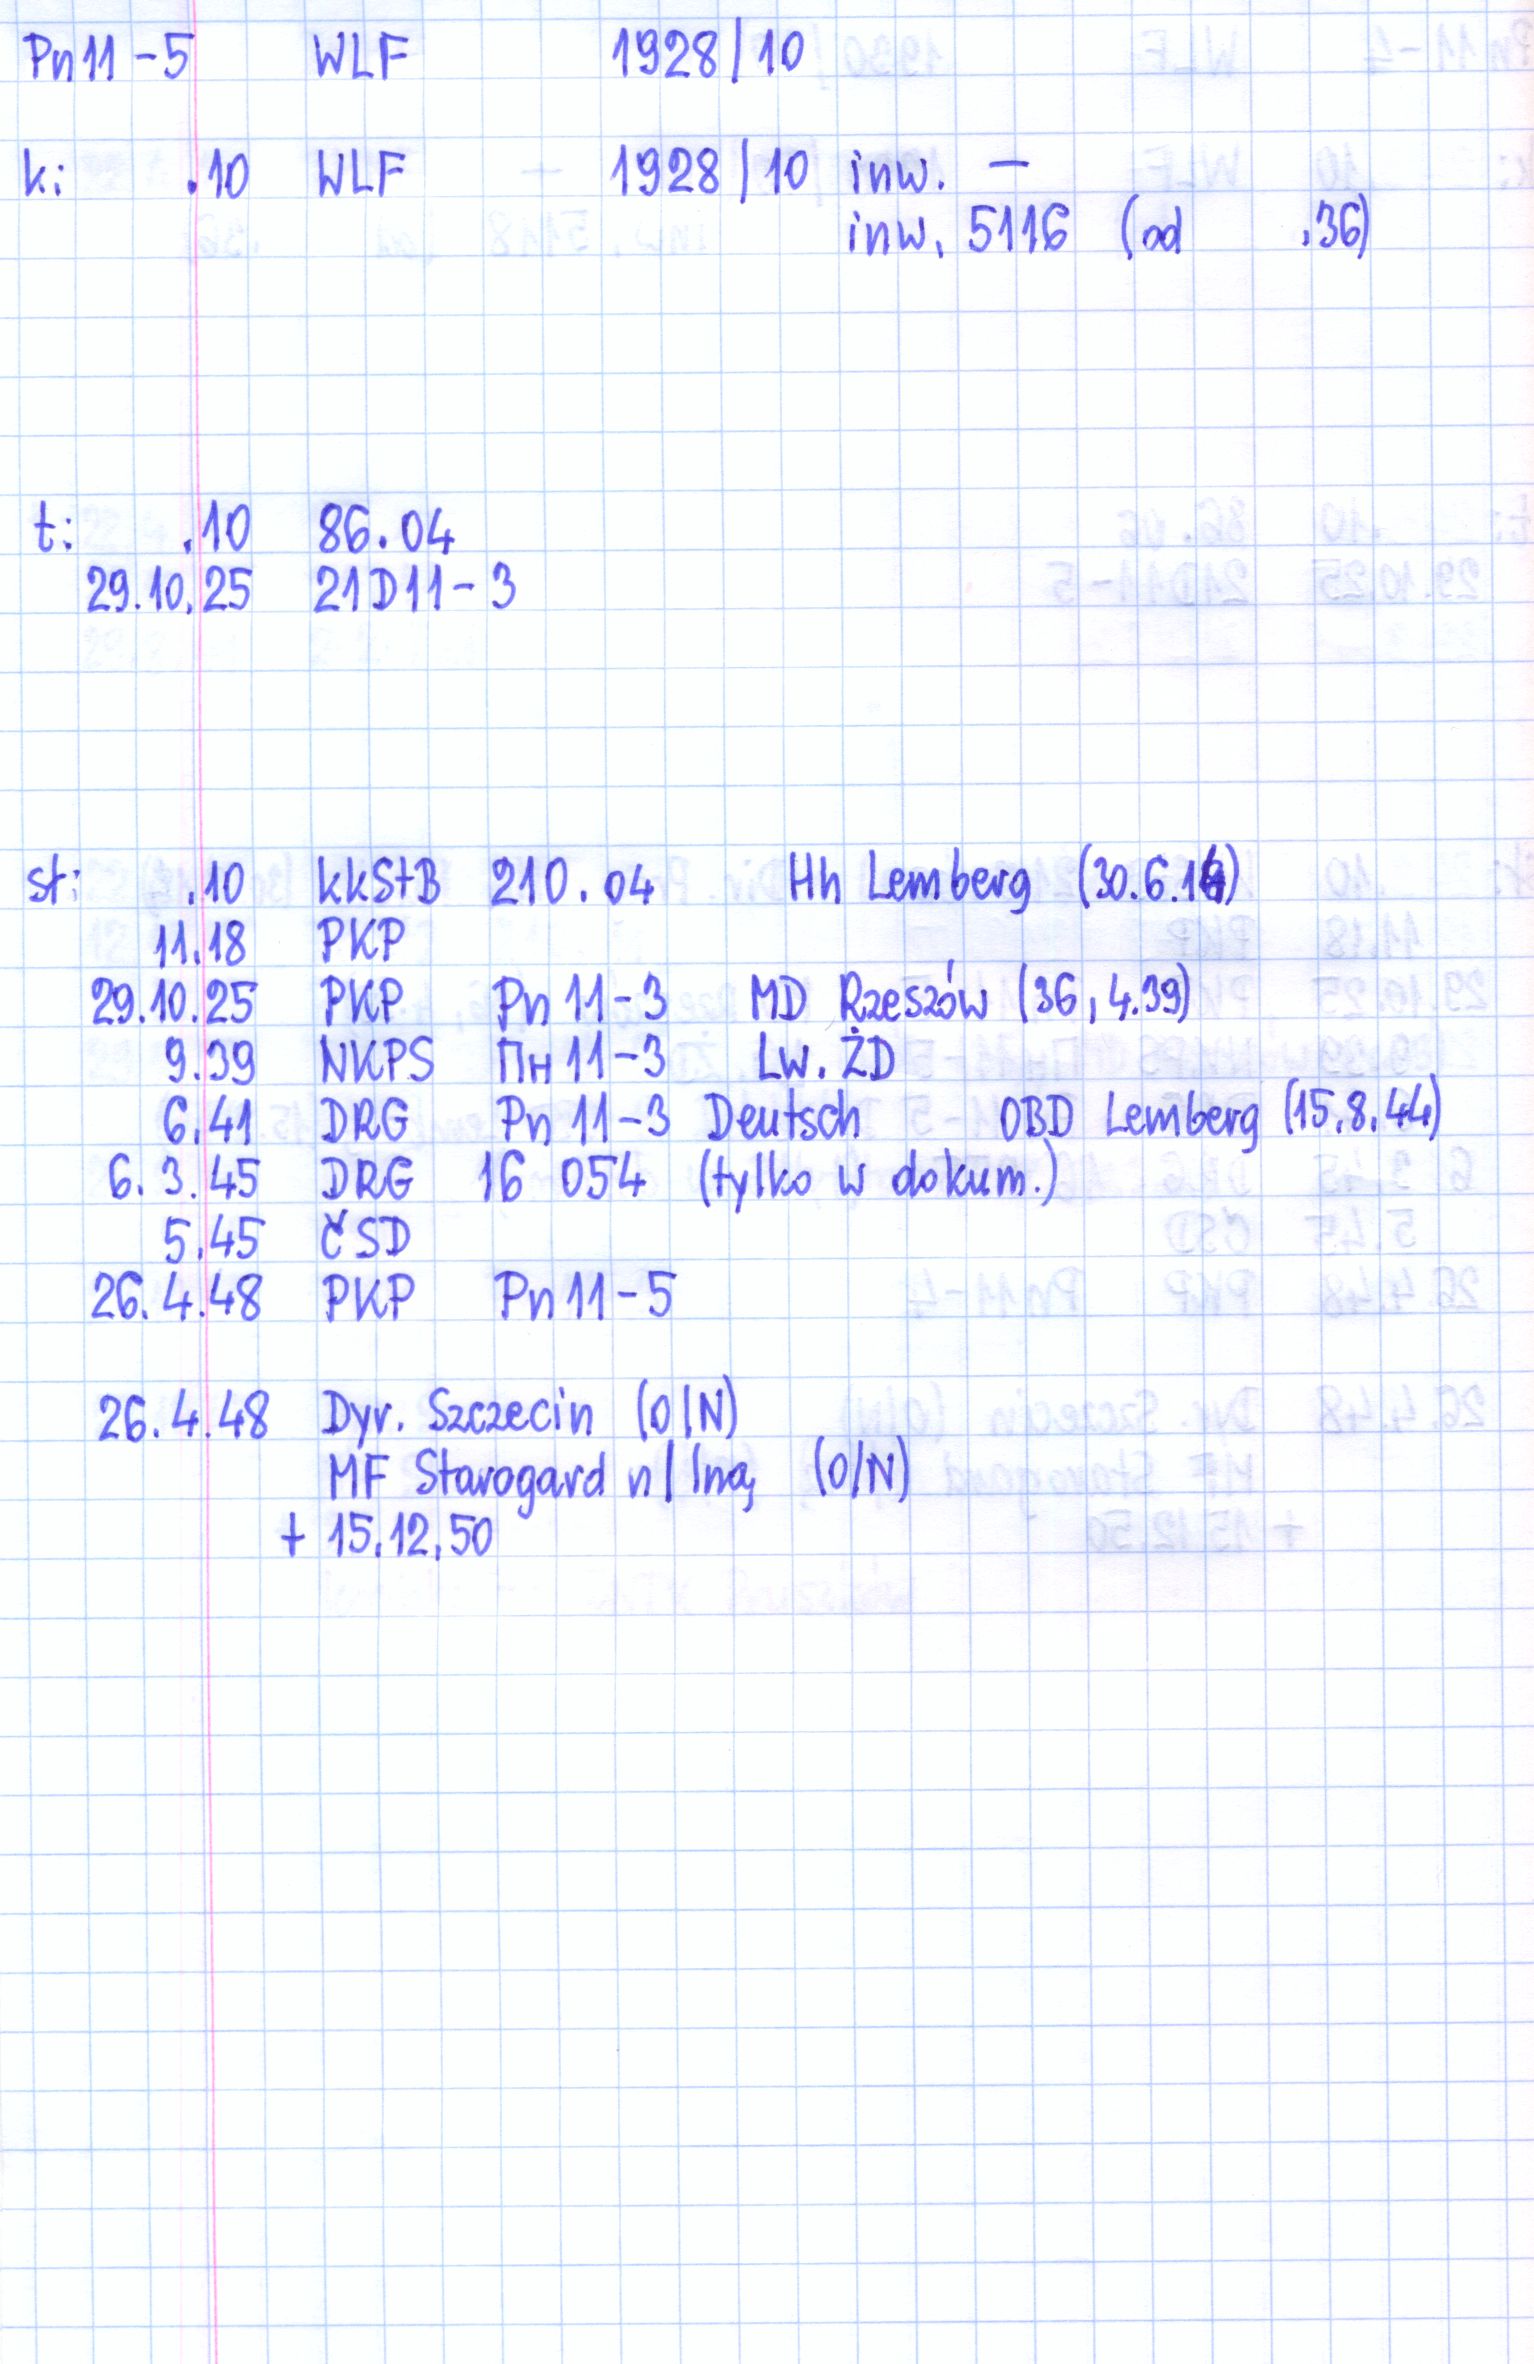 Pn11-5 WLF 1928/10
k: .10 WLF 1928/10 inw. –
inw. 5116 (od .36)
t: .10 86.04
29.10.25 21D11-3
st: .10 kkStB 210.04 Hh Lemberg (30.6.14)
11.18 PKP
29.10.25 PKP Pn 11-3 MD Rzeszów (36, 4.39)
9.39 NKPS Пн 11-3 Lw. ŻD
6.41 DRG Pn 11-3 Deutsch OBD Lemberg (15.8.44)
6.3.45 DRG 16 054 (tylko w dokum.)
5.45 ČSD
26.4.48 PKP Pn11-5
26.4.48 Dyr. Szczecin (O/N)
MF Starogard n/Iną (O/N)
+ 15.12.50